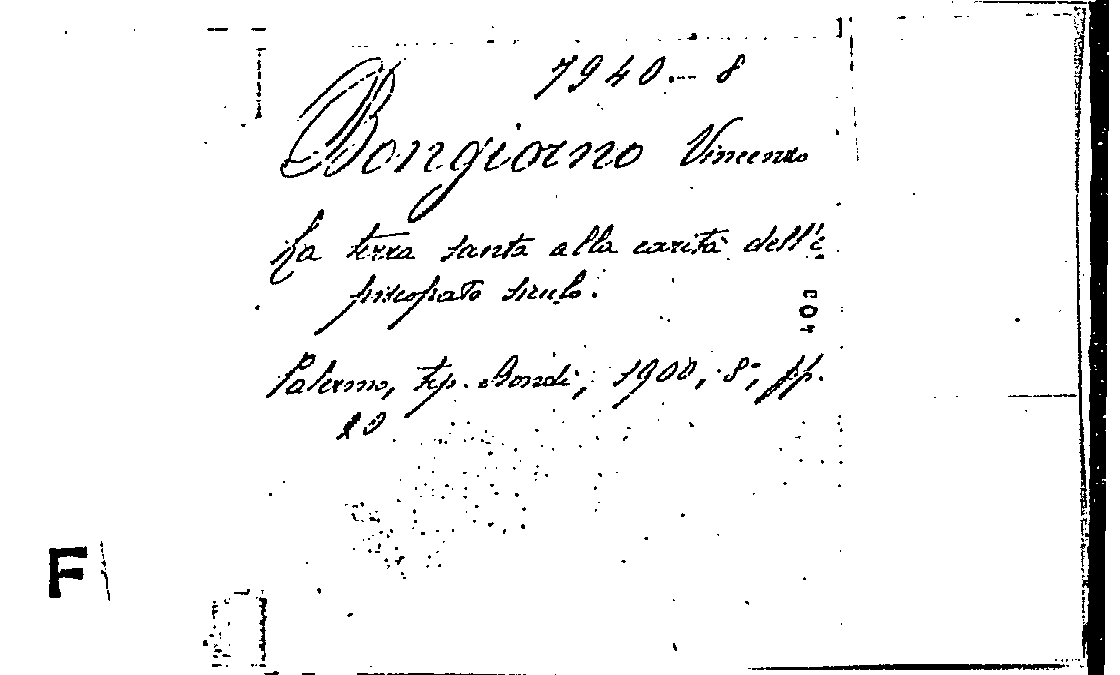 7940.-8
Bongiorno Vincenzo
La terra santa alla carità dell'e
piscopato siculo.
403
Palermo, tip. Bondì, 1900, 8°, pp.
20
F